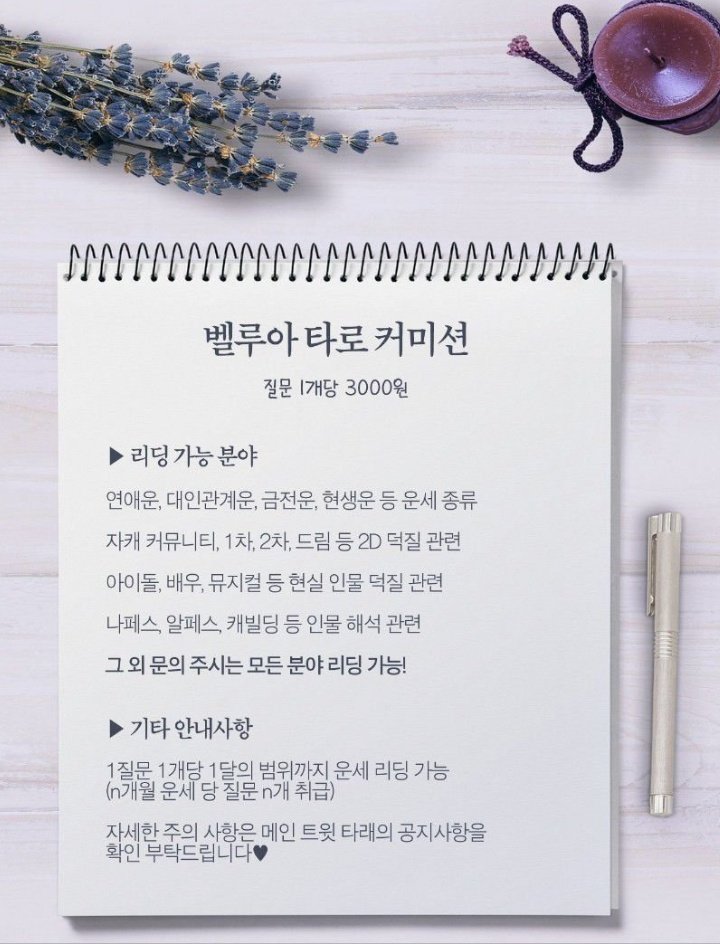 벨루아 타로 커미션
질문 1개당 3000원
▶ 리딩 가능 분야
연애운, 대인관계운, 금전운, 현생운 등 운세 종류
자캐 커뮤니티, 1차, 2차, 드림 등 2D 덕질 관련
아이돌, 배우, 뮤지컬 등 현실 인물 덕질 관련
나페스, 알페스, 캐빌딩 등 인물 해석 관련
그 외 문의 주시는 모든 분야 리딩 가능!
▶ 기타 안내사항
1질문 1개당 1달의 범위까지 운세 리딩 가능
(n개월 운세 당 질문 n개 취급)
자세한 주의 사항은 메인 트윗 타래의 공지사항을
확인 부탁드립니다♥